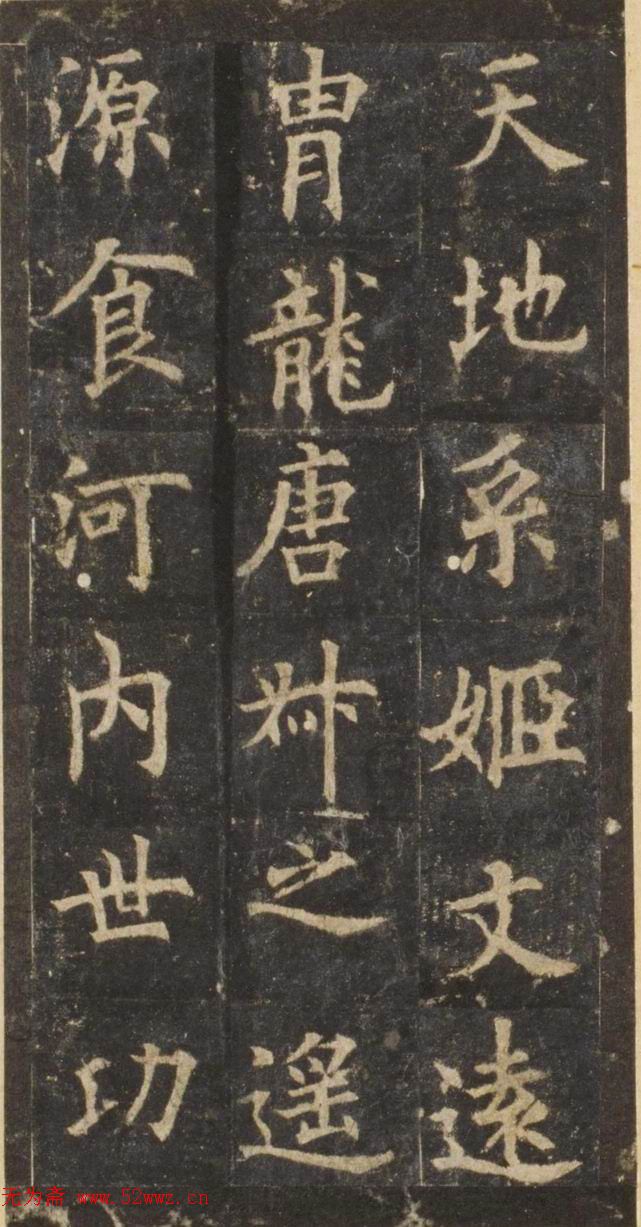 天地系姬文遠
胄龍唐叔之遥
源食河内世功
无为斋 www.52wwz.cn